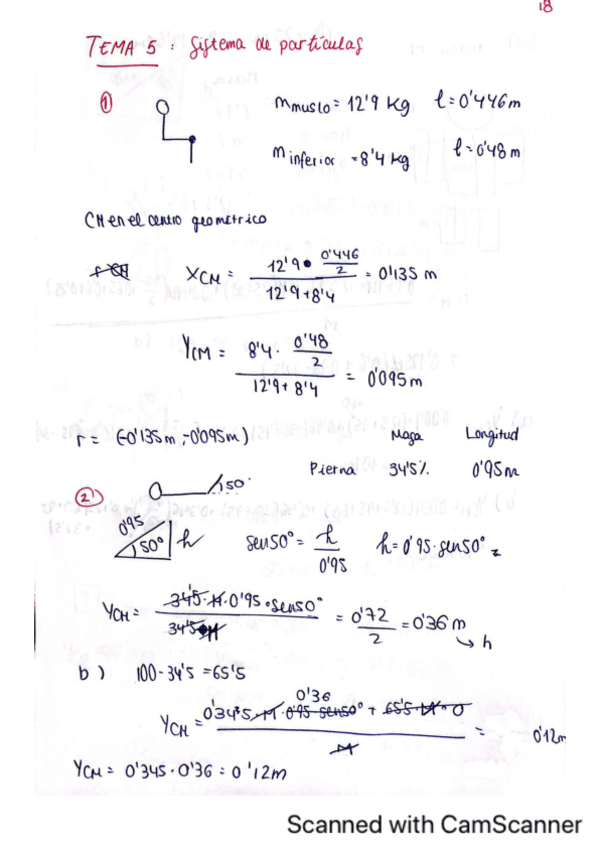 18
TEMA 5: Sistema de partículas
① m muslo = 12'9 kg l = 0'446 m
m inferior = 8'4 kg l = 0'48 m
CM en el centro geométrico
X CM = 12'9 · 0'446/2 / 12'9+8'4 = 0'135 m
Y CM = 8'4 · 0'48/2 / 12'9 + 8'4 = 0'095 m
r = (-0'135m, -0'095m) Masa Longitud
Pierna 34'5% 0'95m
② 50°
0'95 50° h sen50° = h/0'95 h = 0'95 · sen50° =
Y CM = 34'5 · M · 0'95 · sen50° / 34'5 M = 0'72/2 = 0'36 m
→ h
b) 100 - 34'5 = 65'5
0'36
Y CM = 0'345 · M · 0'95 sen50° + 65'5 · M · 0 / M = 0'12m
Y CM = 0'345 · 0'36 = 0'12m
Scanned with CamScanner